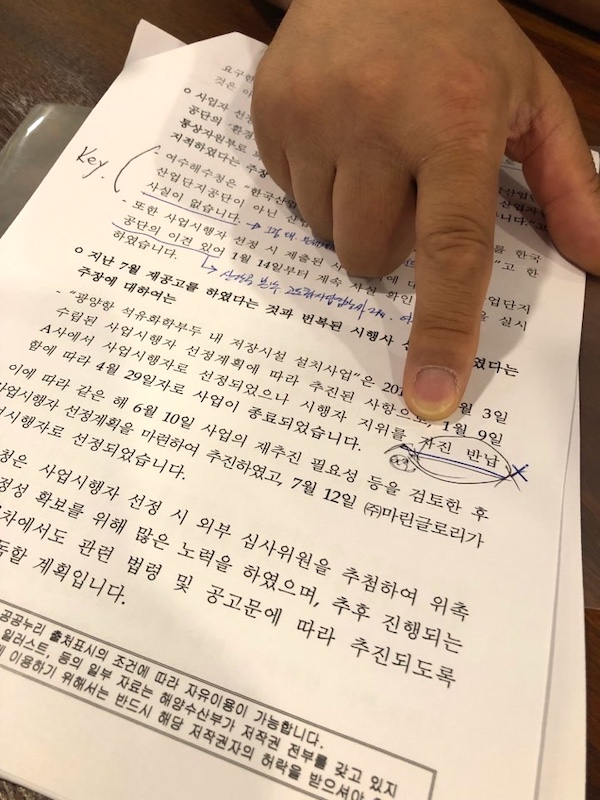 요구한
것은 이
ㅇ 사업자 선정
공단의 환경
통상자원부로
지적하였다는 주장
Key.
여수해수청은 "한국산업
산업단지공단이 아닌 산업
사실이 없습니다.
- 또한 사업시행자 선정 시 제출된 를 한국
공단의 이견 있어 1월 14일부터 계속 사실 확인 업단지
하였습니다. 을 실시
ㅇ 지난 7월 재공고를 하였다는 것과 번복된 시행사 였다는
주장에 대하여는
- "광양항 석유화학부두 내 저장시설 설치사업"은 월 3일
수립된 사업시행자 선정계획에 따라 추진된 사항으로, 1월 9일
A사에서 사업시행자로 선정되었으나 시행자 지위를 자진 반납
함에 따라 4월 29일자로 사업이 종료되었습니다.
이에 따라 같은 해 6월 10일 사업의 재추진 필요성 등을 검토한 후
사업시행자 선정계획을 마련하여 추진하였고, 7월 12일 ㈜마린글로리가
시행자로 선정되었습니다.
청은 사업시행자 선정 시 외부 심사위원을 추첨하여 위촉
정성 확보를 위해 많은 노력을 하였으며, 추후 진행되는
차에서도 관련 법령 및 공고문에 따라 추진되도록
독할 계획입니다.
공공누리 출처표시의 조건에 따라 자유이용이 가능합니다.
일러스트, 등의 일부 자료는 해양수산부가 저작권 전부를 갖고 있지
이용하기 위해서는 반드시 해당 저작권자의 허락을 받으셔야